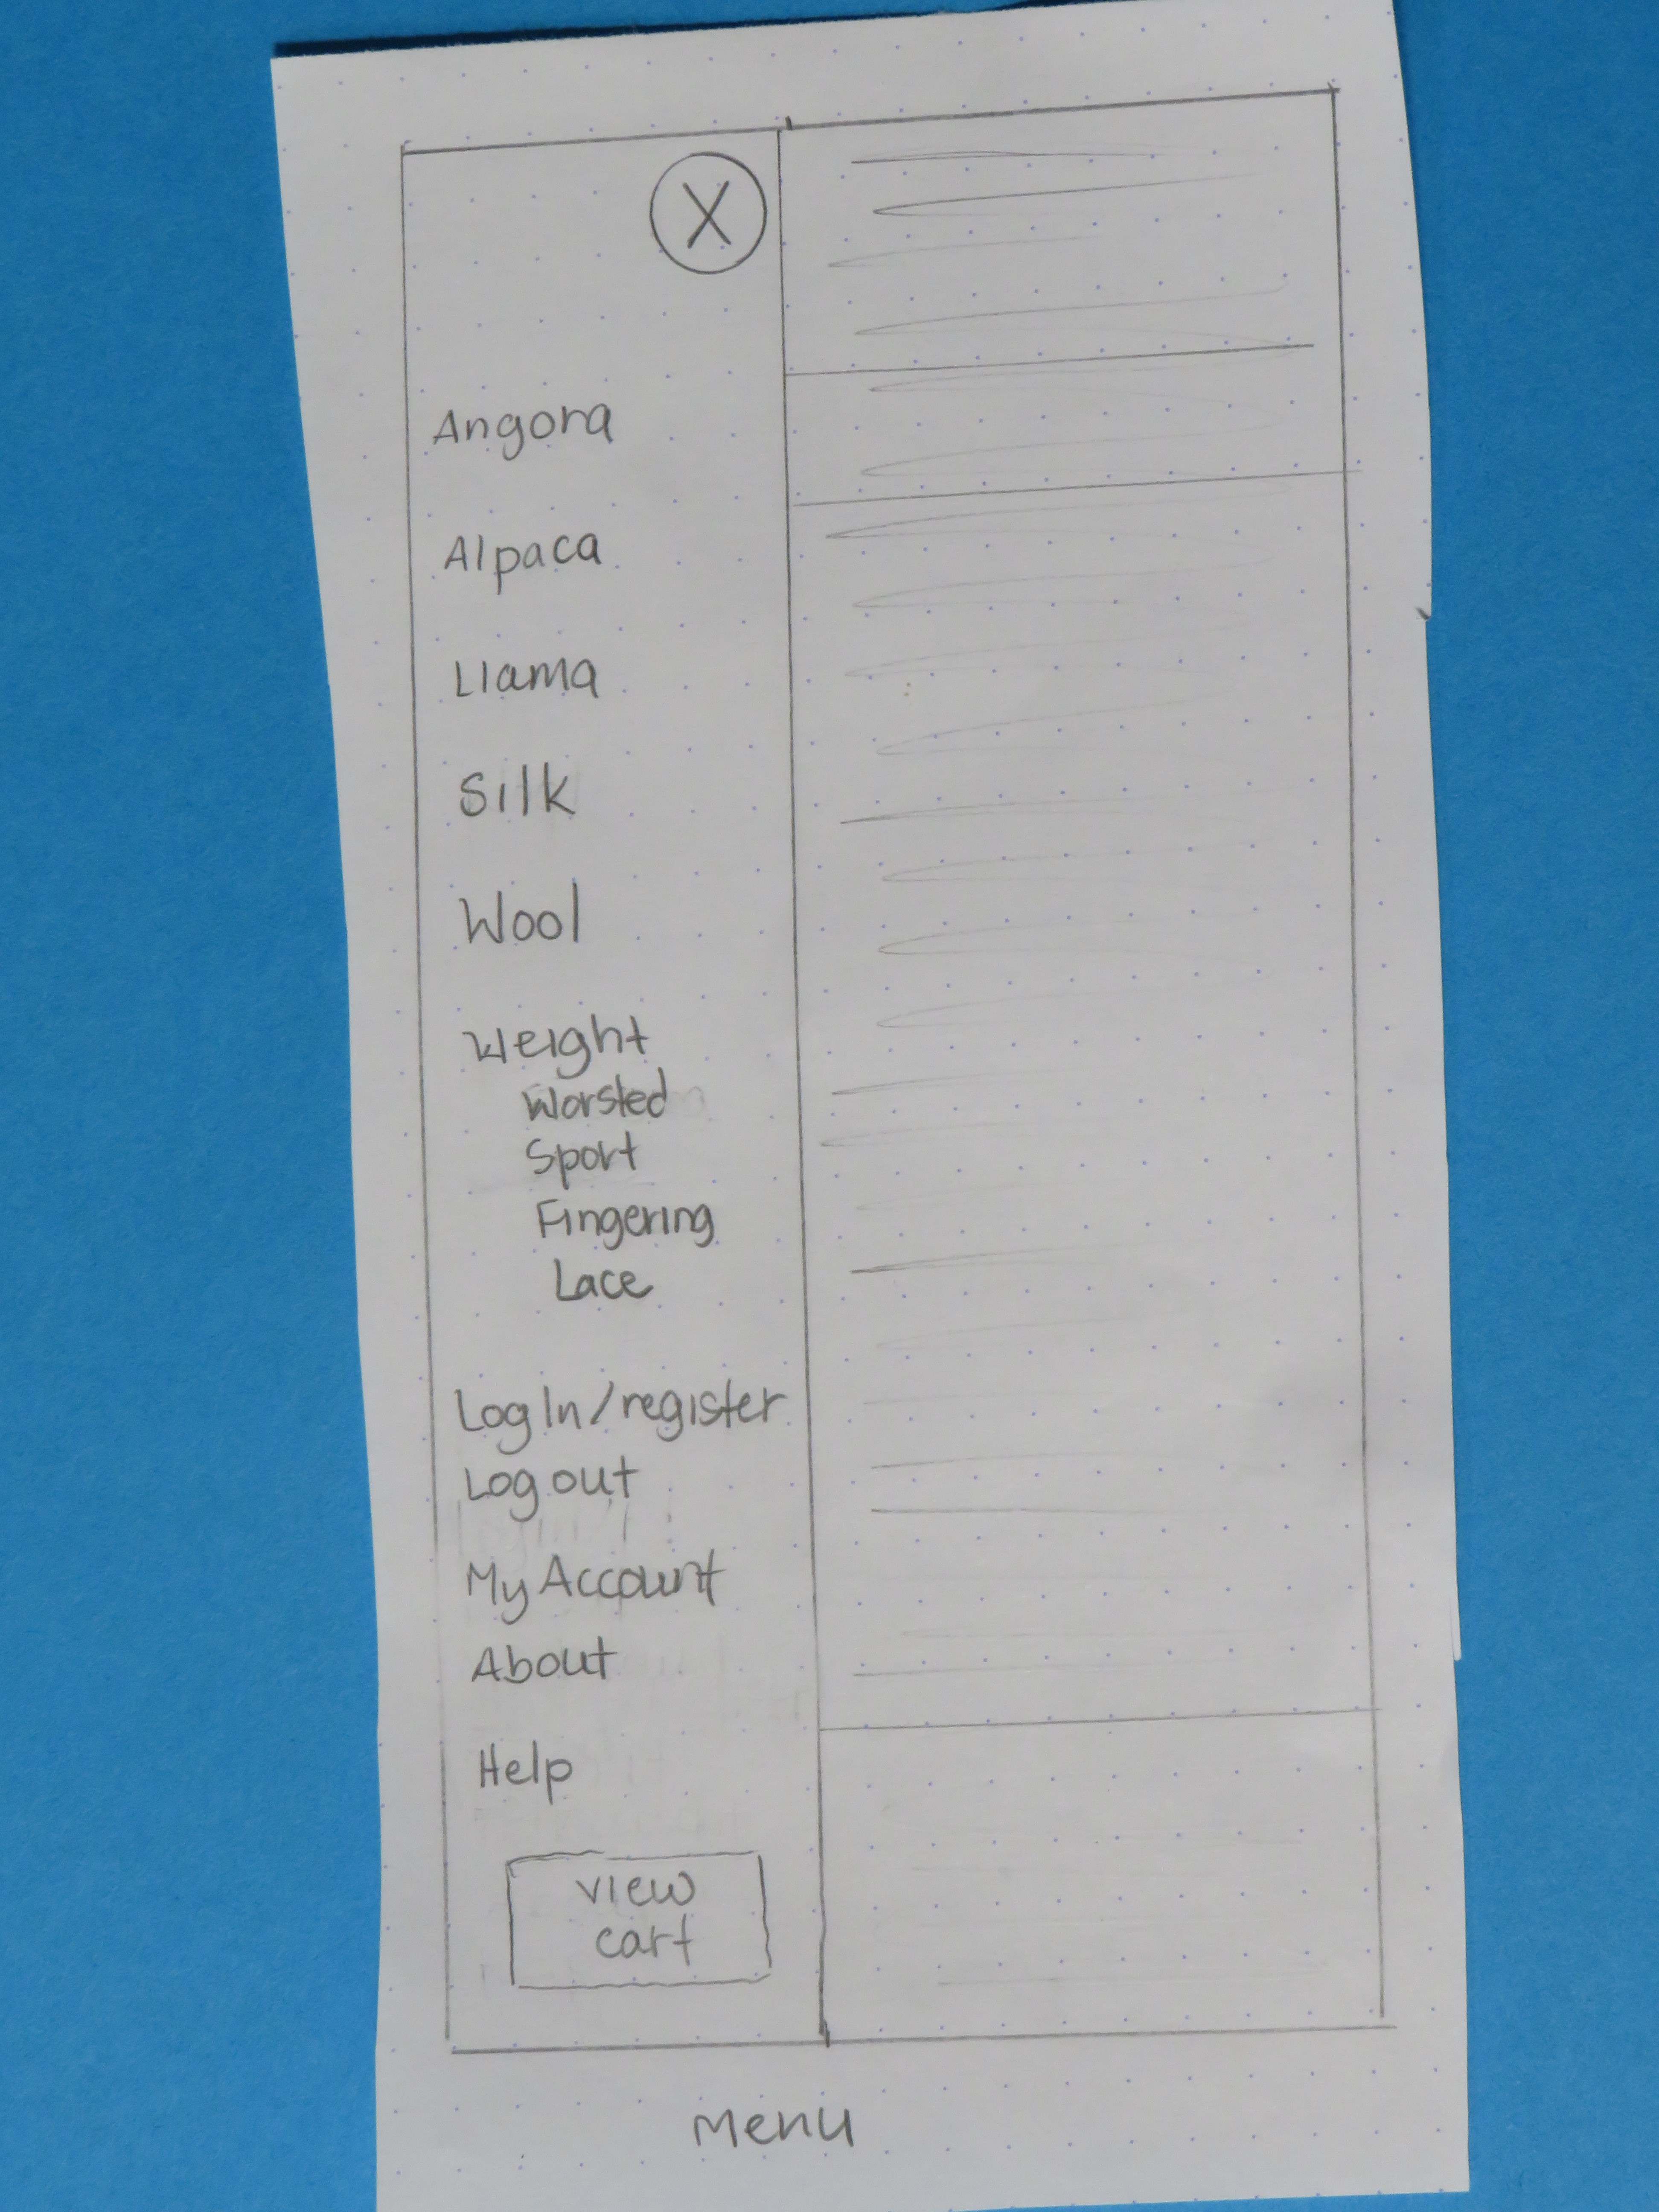 X
Angora
Alpaca
Llama
Silk
Wool
Weight
Worsted
Sport
Fingering
Lace
Log In/register
Log out
My Account
About
Help
view
cart
Menu